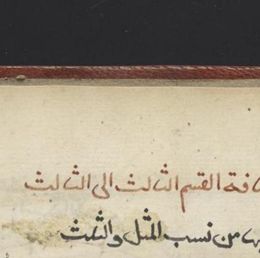 ـافة القسم الثالث الى الثالث
ـها من نسب المثل والثلث